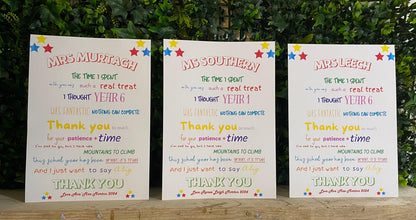 MRS MURTAGH
THE TIME I SPENT
with you was such a real treat
I THOUGHT YEAR 6
WAS FANTASTIC NOTHING CAN COMPETE
Thank you so much
for your patience + time
MOUNTAINS TO CLIMB
This school year has been great, it's true
And I just want to say A big
THANK YOU
MS SOUTHERN
THE TIME I SPENT
with you was such a real treat
I THOUGHT YEAR 1
WAS FANTASTIC NOTHING CAN COMPETE
Thank you so much
for your patience + time
MOUNTAINS TO CLIMB
This school year has been great, it's true
And I just want to say A big
THANK YOU
MRS LEECH
THE TIME I SPENT
with you was such a real treat
I THOUGHT YEAR 6
WAS FANTASTIC NOTHING CAN COMPETE
Thank you so much
for your patience + time
MOUNTAINS TO CLIMB
This school year has been great, it's true
And I just want to say A big
THANK YOU